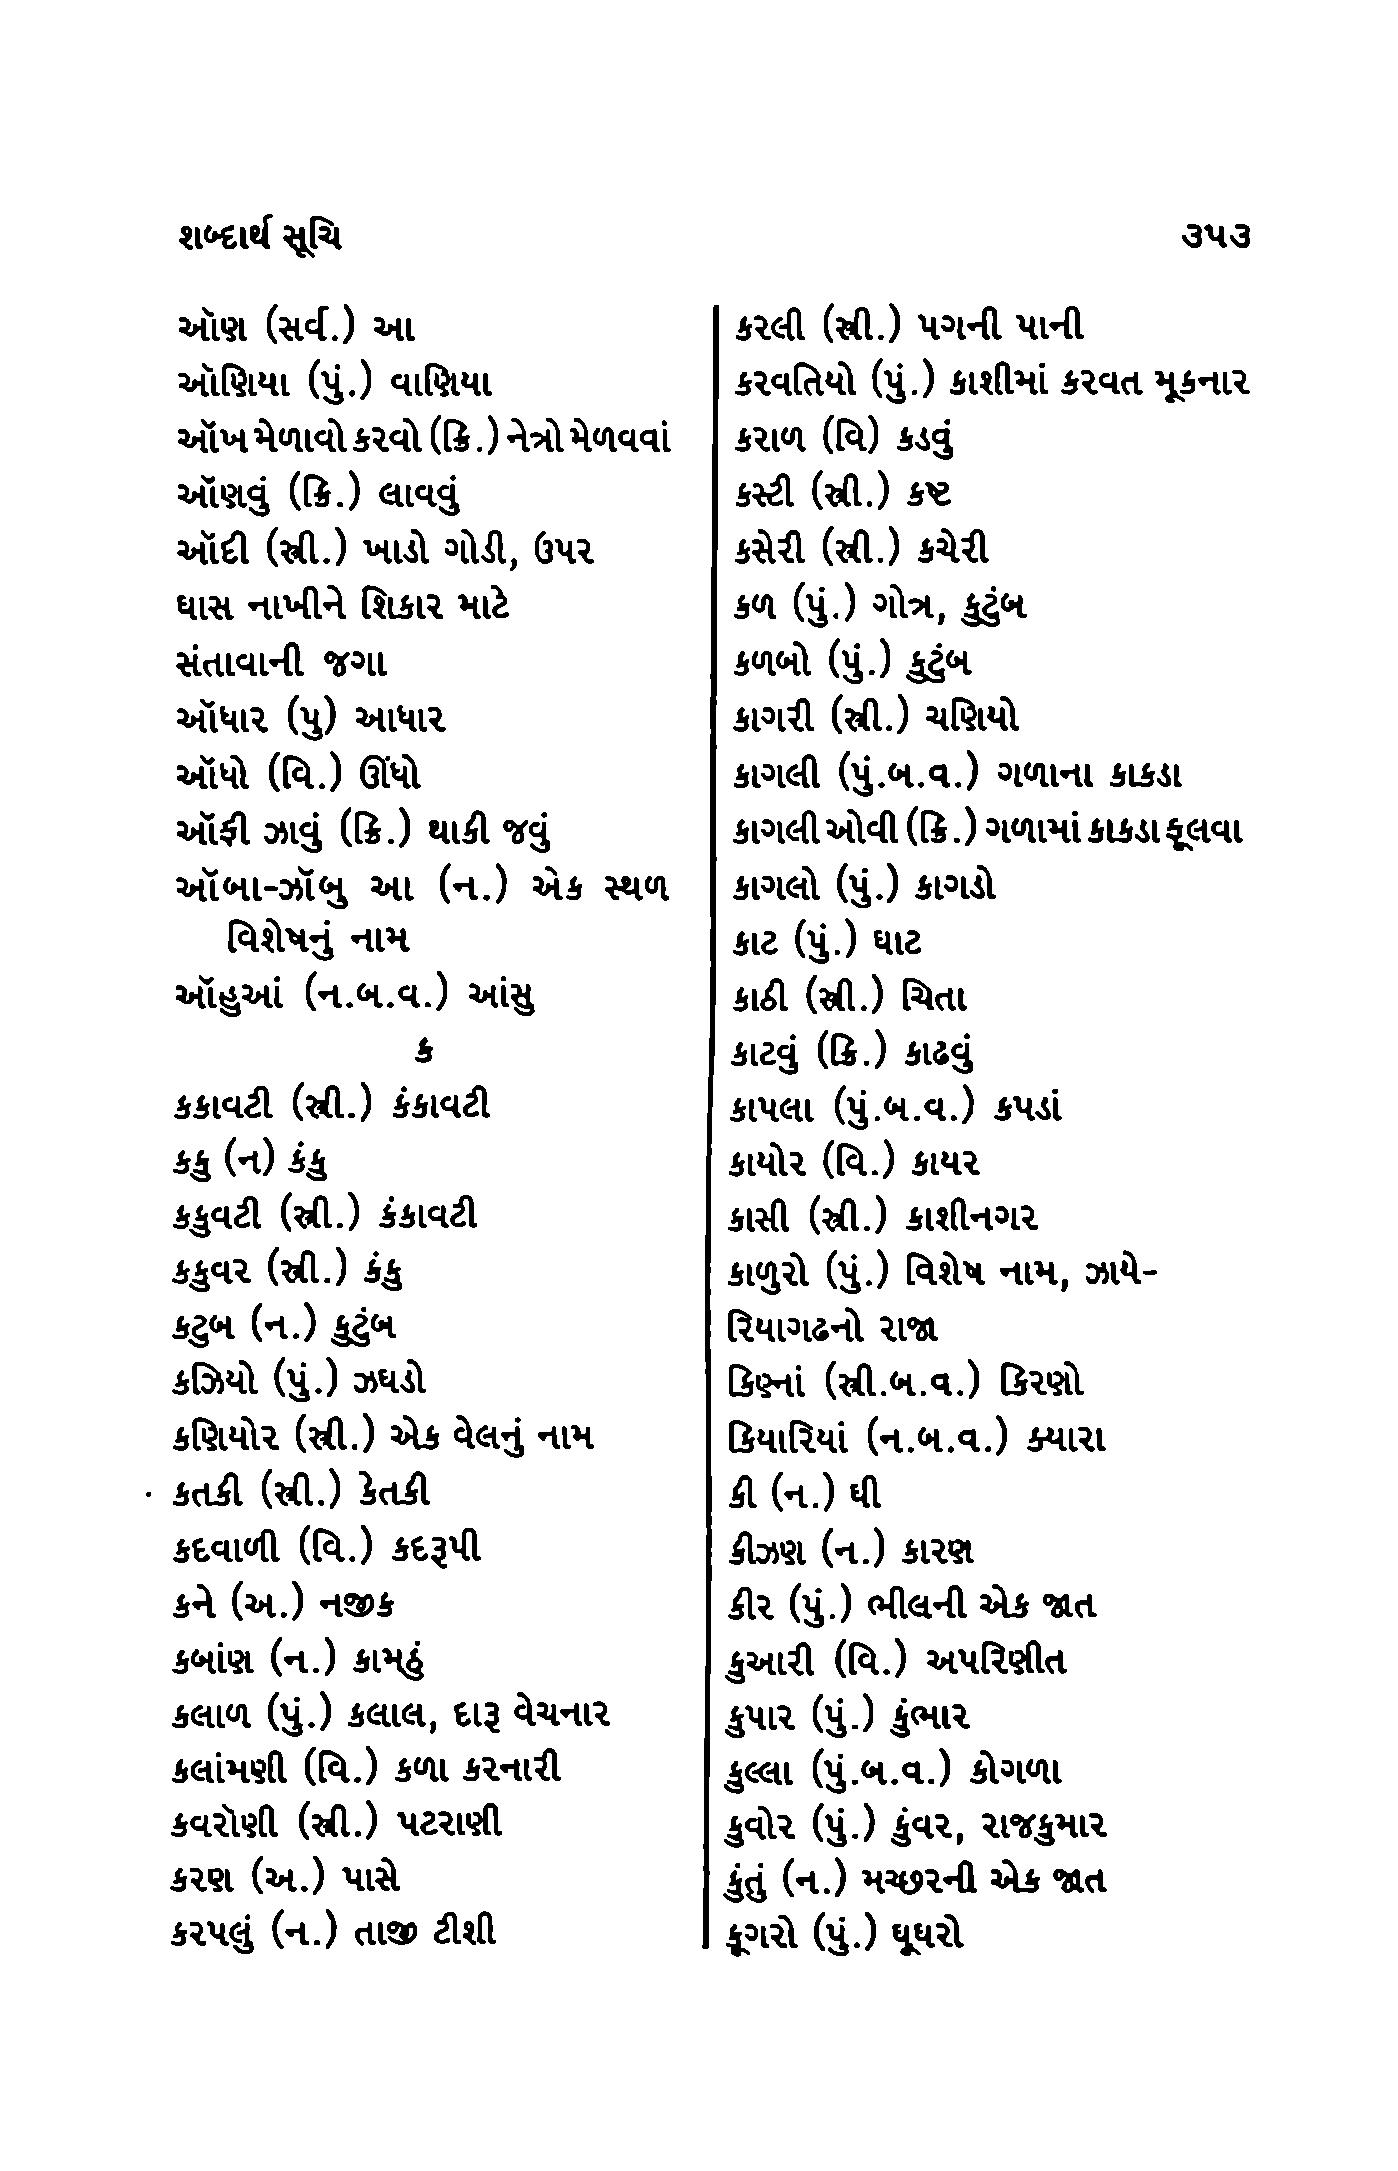 શબ્દાર્થ સૂચિ
૩૫૩
ઑણ (સર્વ.) આ
ઑણિયા (પું.) વાણિયા
ઑખ મેળાવો કરવો (ક્રિ.) નેત્રો મેળવવાં
ઑણવું (ક્રિ.) લાવવું
ઑદી (સ્ત્રી.) ખાડો ગોડી, ઉપર
ઘાસ નાખીને શિકાર માટે
સંતાવાની જગા
ઑધાર (પુ) આધાર
ઑધો (વિ.) ઊંધો
ઑફી ઝાવું (ક્રિ.) થાકી જવું
ઑબા-ઝૉબુ આ (ન.) એક સ્થળ
વિશેષનું નામ
ઑહુઆં (ન.બ.વ.) આંસુ
ક
કકાવટી (સ્ત્રી.) કંકાવટી
કકુ (ન) કંકુ
કકુવટી (સ્ત્રી.) કંકાવટી
કકુવર (સ્ત્રી.) કંકુ
કટુબ (ન.) કુટુંબ
કઝિયો (પું.) ઝઘડો
કણિયોર (સ્ત્રી.) એક વેલનું નામ
કતકી (સ્ત્રી.) કેતકી
કદવાળી (વિ.) કદરૂપી
કને (અ.) નજીક
કબાંણ (ન.) કામઠું
કલાળ (પું.) કલાલ, દારૂ વેચનાર
કલાંમણી (વિ.) કળા કરનારી
કવરૉણી (સ્ત્રી.) પટરાણી
કરણ (અ.) પાસે
કરપલું (ન.) તાજી ટીશી
કરલી (સ્ત્રી.) પગની પાની
કરવતિયો (પું.) કાશીમાં કરવત મૂકનાર
કરાળ (વિ) કડવું
કસ્ટી (સ્ત્રી.) કષ્ટ
કસેરી (સ્ત્રી.) કચેરી
કળ (પું.) ગોત્ર, કુટુંબ
કળબો (પું.) કુટુંબ
કાગરી (સ્ત્રી.) ચણિયો
કાગલી (પું.બ.વ.) ગળાના કાકડા
કાગલી ઓવી (ક્રિ.) ગળામાં કાકડા ફૂલવા
કાગલો (પું.) કાગડો
કાટ (પું.) ઘાટ
કાઠી (સ્ત્રી.) ચિતા
કાટવું (ક્રિ.) કાઢવું
કાપલા (પું.બ.વ.) કપડાં
કાયોર (વિ.) કાયર
કાસી (સ્ત્રી.) કાશીનગર
કાળુરો (પું.) વિશેષ નામ, ઝાયે-
રિયાગઢનો રાજા
કિણ્નાં (સ્ત્રી.બ.વ.) કિરણો
કિયારિયાં (ન.બ.વ.) ક્યારા
કી (ન.) ઘી
કીઝણ (ન.) કારણ
કીર (પું.) ભીલની એક જાત
કુઆરી (વિ.) અપરિણીત
કુપાર (પું.) કુંભાર
કુલ્લા (પું.બ.વ.) કોગળા
કુવોર (પું.) કુંવર, રાજકુમાર
કુંતું (ન.) મચ્છરની એક જાત
કૂગરો (પું.) ઘૂઘરો